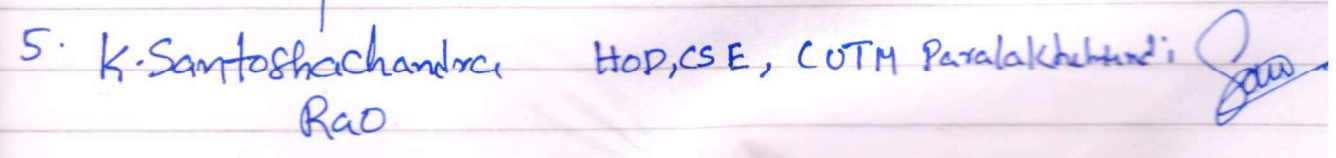 5. K. Santoshachandra HOD, CSE, CUTM Paralakhemundi
Rao